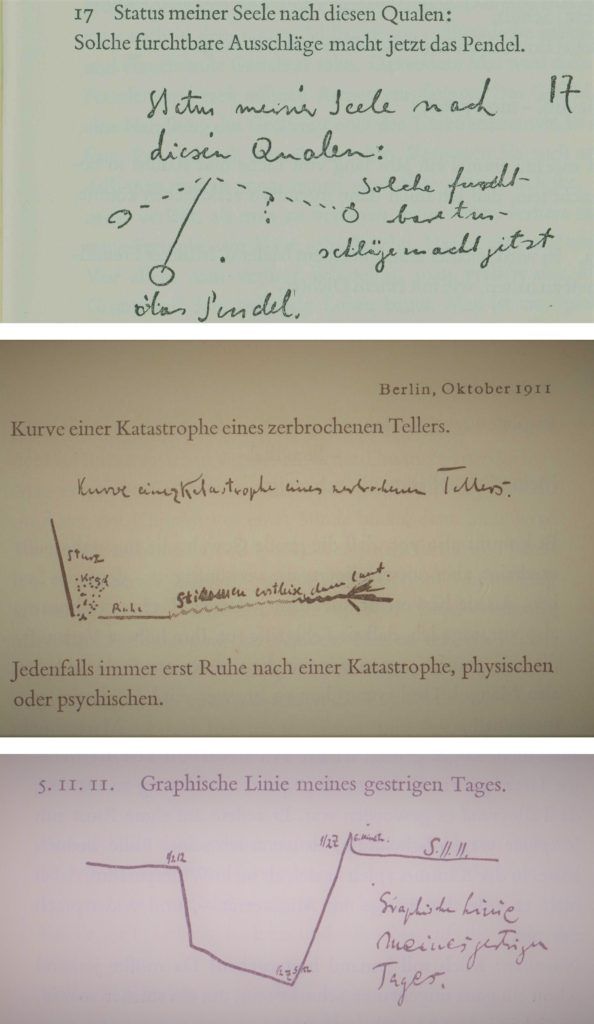 17 Status meiner Seele nach diesen Qualen:
Solche furchtbare Ausschläge macht jetzt das Pendel.
Status meiner Seele nach 17
diesen Qualen:
Solche furcht-
bare Aus-
schläge macht jetzt
das Pendel.
?
Berlin, Oktober 1911
Kurve einer Katastrophe eines zerbrochenen Tellers.
Kurve einer Katastrophe eines zerbrochenen Tellers.
Sturz
Krach
Ruhe
Stimmen erst leise, dann laut.
Jedenfalls immer erst Ruhe nach einer Katastrophe, physischen
oder psychischen.
5. 11. 11. Graphische Linie meines gestrigen Tages.
1/2 12
1/2 7
5. 11. 11.
Graphische Linie
meines gestrigen
Tages.